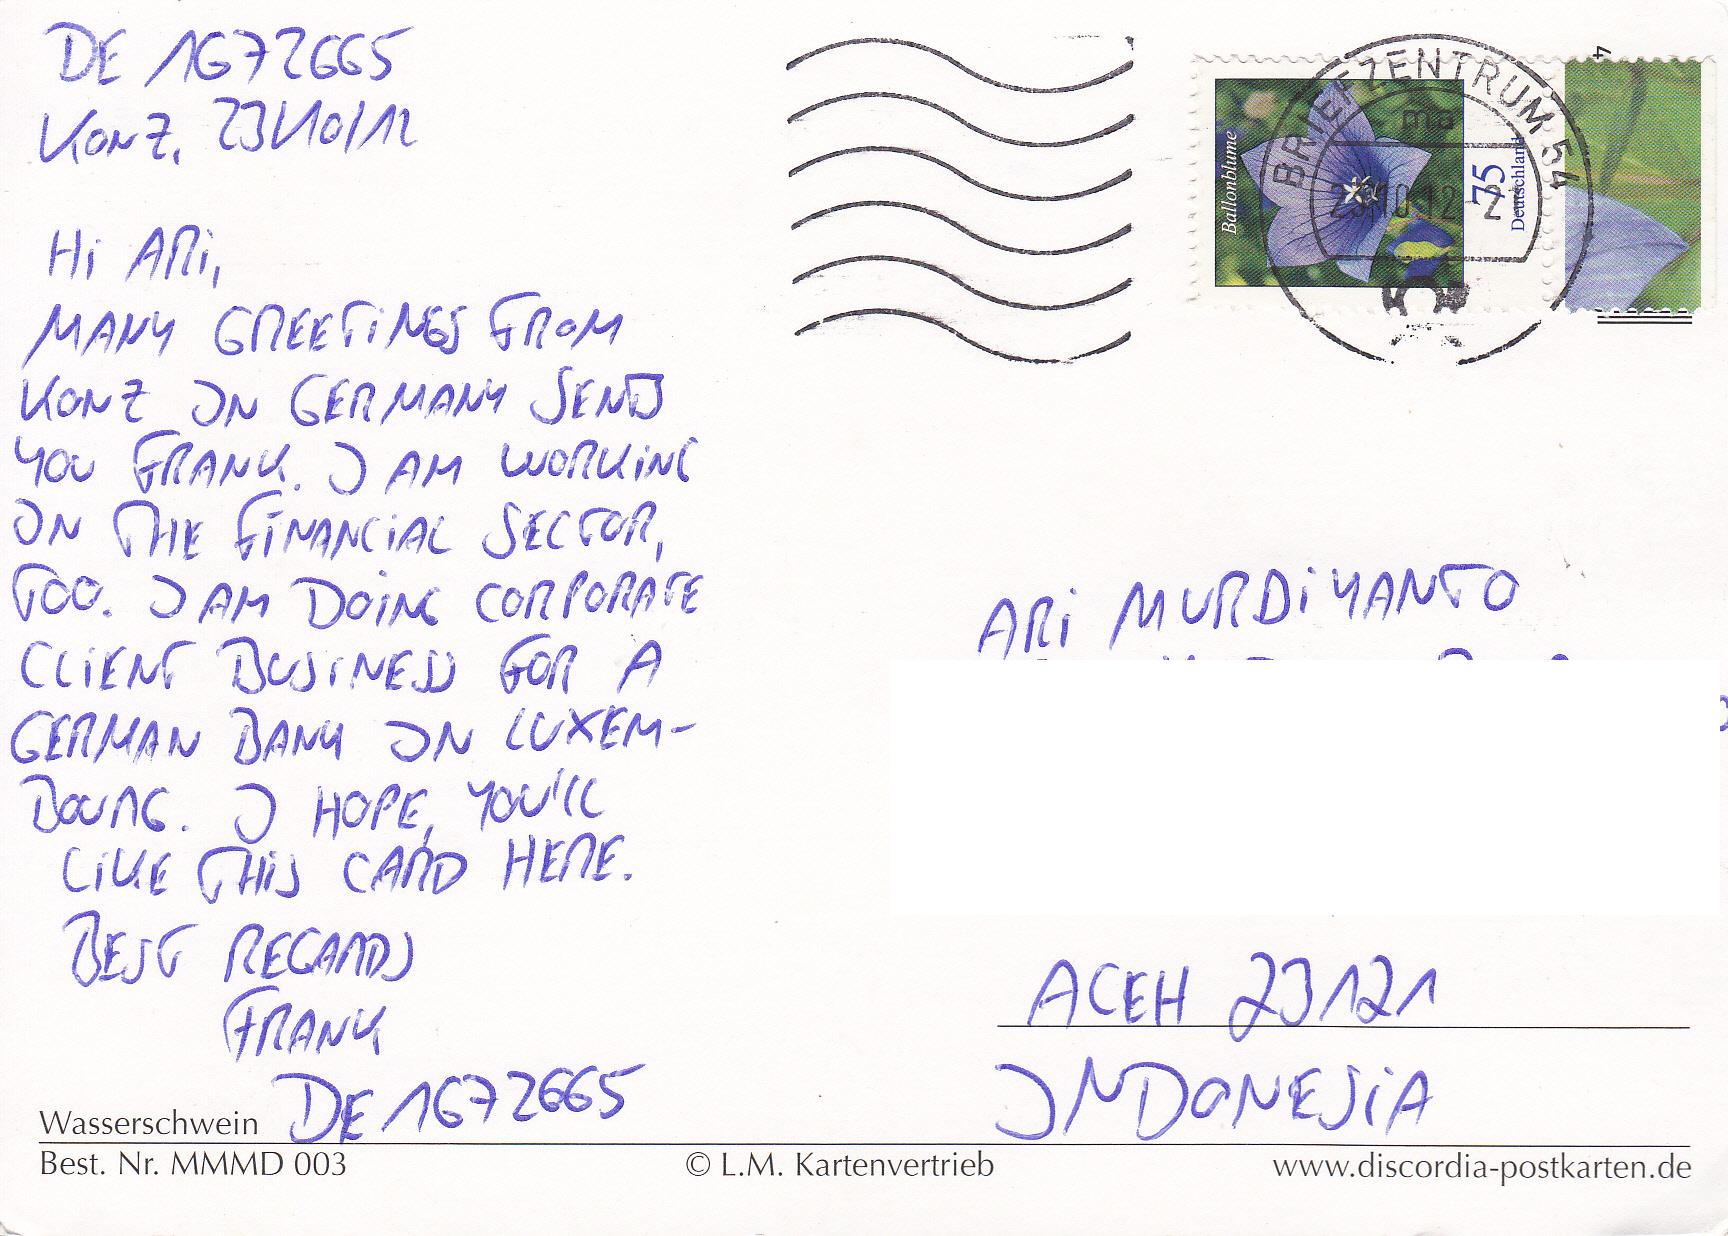 DE 1672665
KONZ, 23/10/12
Hi ARi,
MANY GREETiNGS FROM
KONZ IN GERMANY SENDS
YOU FRANK. I AM WORKiNG
IN THE FiNANCiAL SECTOR,
TOO. I AM DOiNG CORPORATE
CLiENT BUSiNESS FOR A
GERMAN BANK IN LUXEM-
BOURG. I HOPE, YOU'LL
LiKE THiS CARD HERE.
BEST REGARDS
FRANK
DE 1672665
Wasserschwein
Best. Nr. MMMD 003
© L.M. Kartenvertrieb
www.discordia-postkarten.de
BRIEFZENTRUM 54
ma
10.12
Ballonblume
75
Deutschland
4
ARi MURDiYANTO
ACEH 23121
INDONESiA